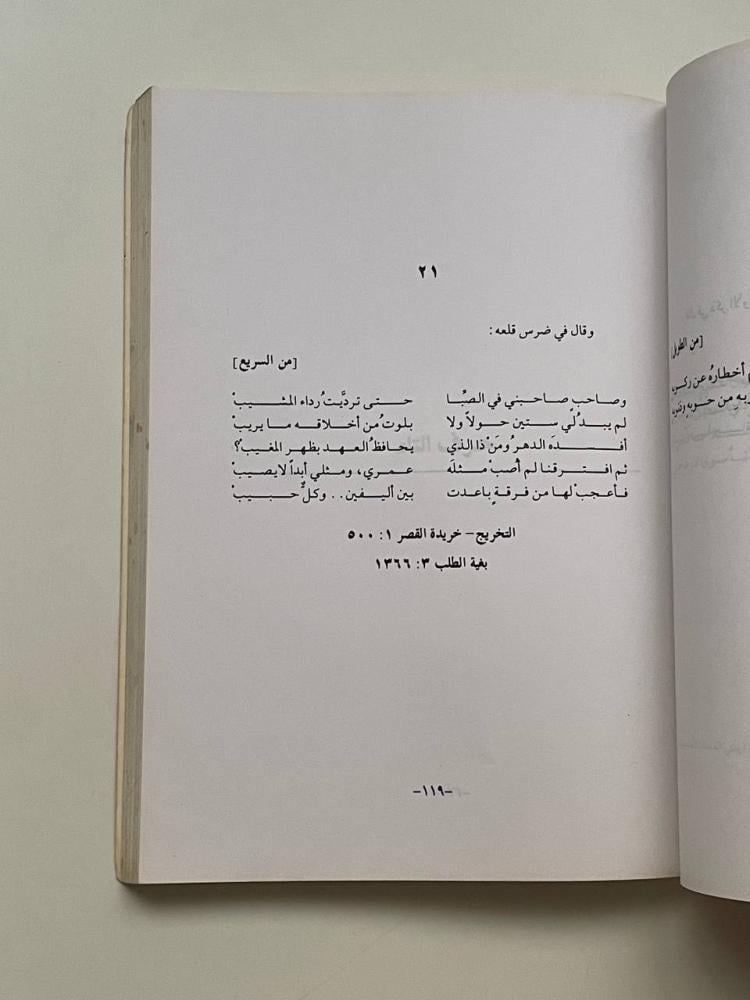 ٢١
وقال في ضرس قلعه:
[من السريع]
وصاحبٍ صاحبني في الصِّبا حتى تردَّيتُ رداء المشيبْ
لم يبدُ لي ستين حولاً ولا بلوتُ من أخلاقه ما يريبْ
أفسدَه الدهرُ ومَنْ ذا الذي يحافظُ العهد بظهر المغيبْ؟
ثم افترقنا لم أصبْ مثلَه عمري، ومثلي أبداً لا يصيبْ
فأعجبْ لها من فرقةٍ باعدت بين أليفين.. وكلٌّ حبيبْ
التخريج- خريدة القصر ١: ٥٠٠
بغية الطلب ٣: ١٣٦٦
-١١٩-
[من الطويل]
أخطارُه عن
من